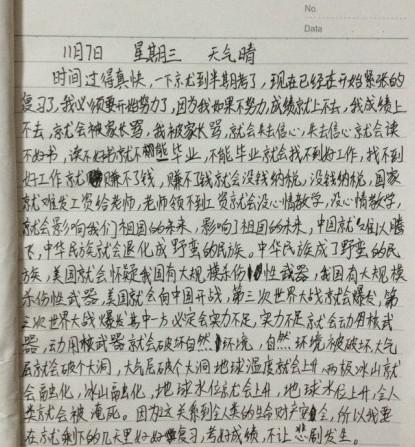 No.
Date
11月7日 星期三 天气晴
时间过得真快，一下京尤到半期考了，现在已经在开始紧张的
复习了，我必须要开始努力了，因为我如果不努力，成绩就上不去，我成绩上
不去，就会被家长骂，我被家长骂，就会失去信心，失去信心就会读
不好书，读不好书就不能毕业，不能毕业就会找不到好工作，找不到
好工作就赚不了钱，赚不了钱就会没钱纳税，没钱纳税，国家
就难发工资给老师，老师领不到工资就会没心情教学，没心情教学，
就会影响我们祖国的未来，影响了祖国的未来，中国就难以腾
飞，中华民族就会退化成野蛮的民族。中华民族成了野蛮的民
族，美国就会怀疑我国有大规模杀伤性武器，我国有大规模
杀伤性武器，美国就会向中国开战，第三次世界大战就会爆发，第
三次世界大战爆发其中一方必定会实力不足，实力不足就会动用核武
器，动用核武器就会破坏自然环境，自然环境被破坏大气
层就会破个大洞，大气层破个大洞地球温度就会上升，两极冰山就
会融化，冰山融化，地球水位就会上升，地球水位上升，全人
类就会被淹死。因为这关系到全人类的生命财产安全，所以我要
在京尤剩下的几天里好好复习，考好成绩，不让悲剧发生。